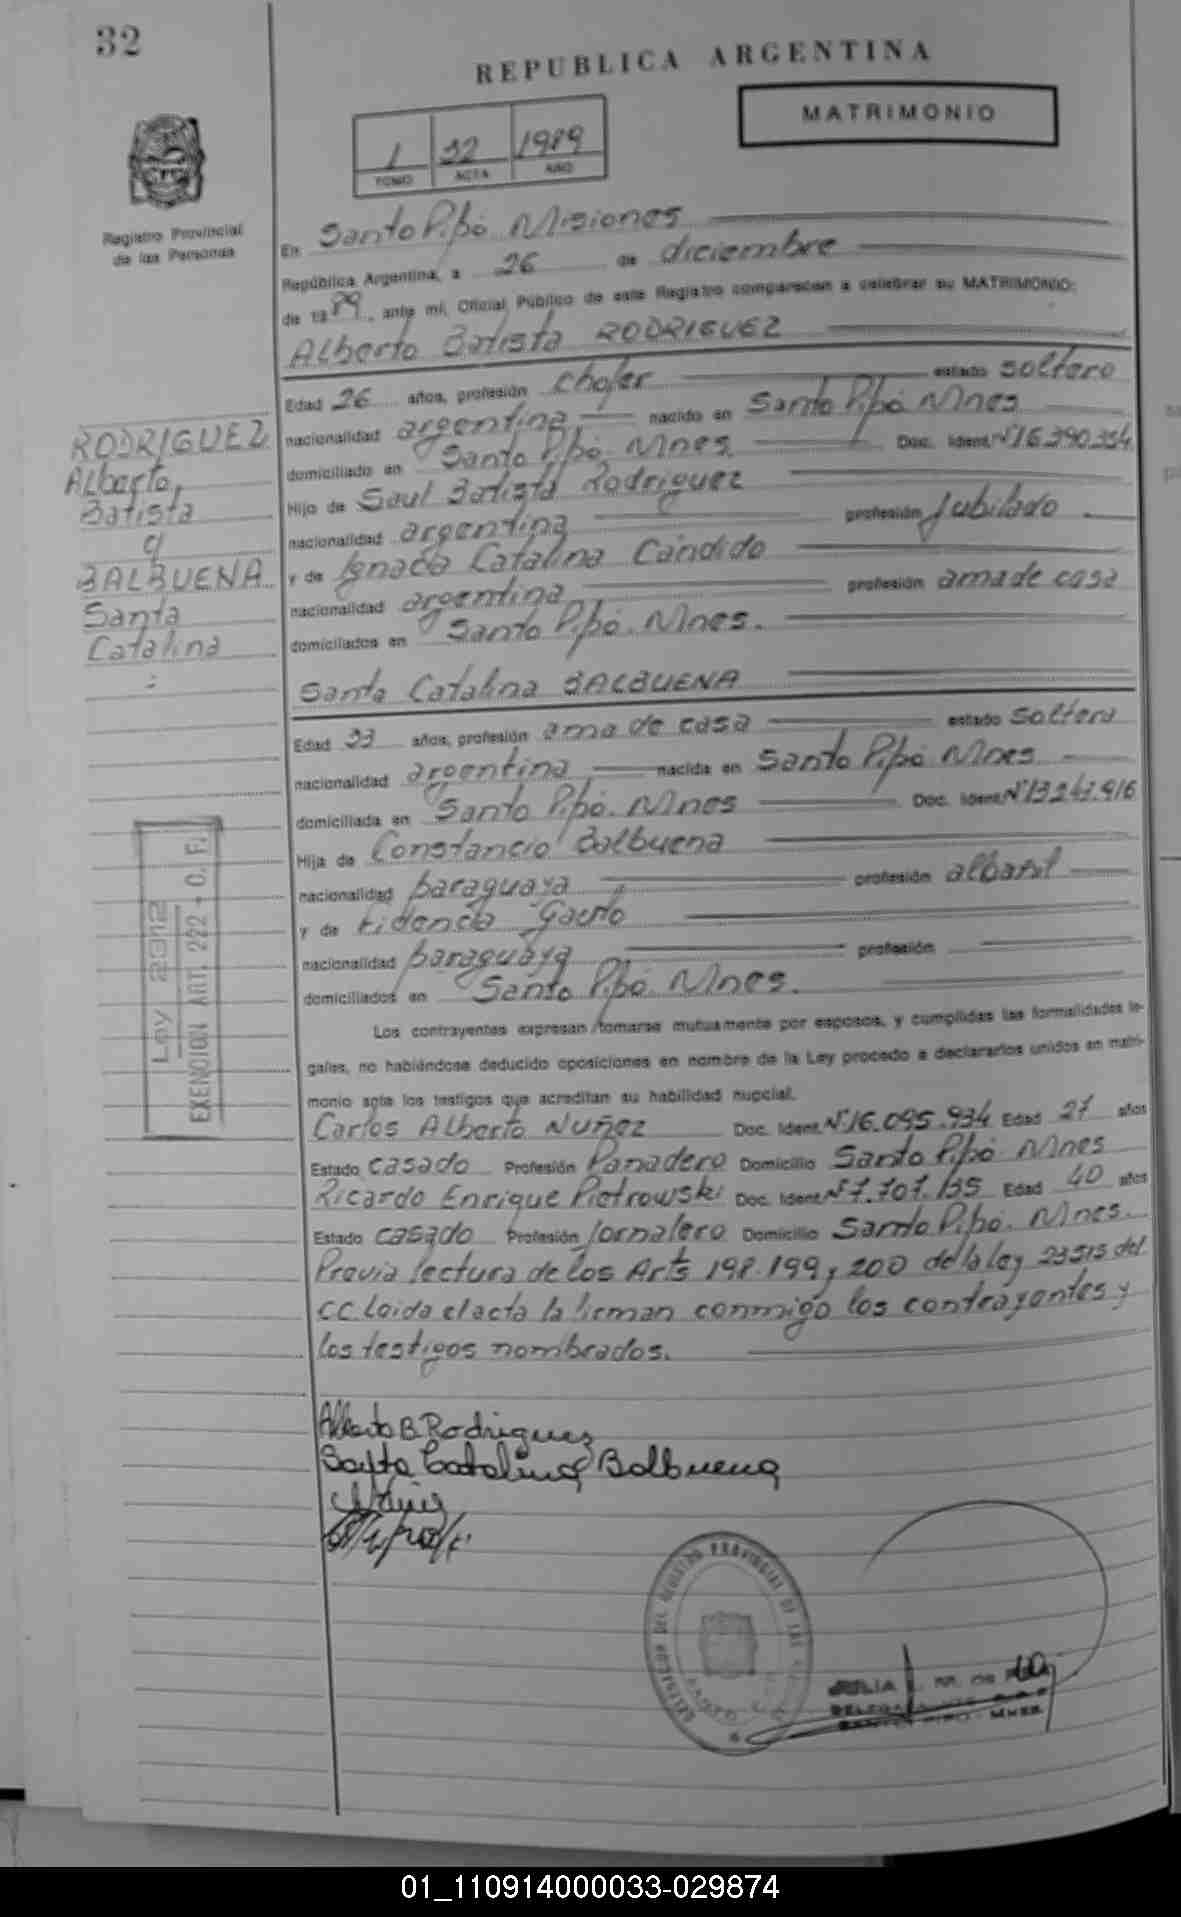 32
REPUBLICA ARGENTINA
MATRIMONIO
1 32 1989
TOMO ACTA AÑO
Registro Provincial
de las Personas
En Santo Pipó Misiones
República Argentina, a 26 de diciembre
de 1989, ante mí, Oficial Público de este Registro comparecen a celebrar su MATRIMONIO:
Alberto Batista RODRIGUEZ
Edad 26 años, profesión chofer estado soltero
nacionalidad argentina nacido en Santo Pipó Mnes
domiciliado en Santo Pipó. Mnes. Doc. Ident. Nº16.390.354
Hijo de Saul Batista Rodriguez
nacionalidad argentina profesión Jubilado
y de Ignacia Catalina Cándido
nacionalidad argentina profesión ama de casa
domiciliados en Santo Pipó. Mnes.
RODRIGUEZ
Alberto,
Batista
y
BALBUENA
Santa
Catalina
Santa Catalina BALBUENA
Edad 33 años, profesión ama de casa estado soltera
nacionalidad argentina nacida en Santo Pipó Mnes
domiciliada en Santo Pipó. Mnes Doc. Ident. Nº13.243.916
Hija de Constancio Balbuena
nacionalidad paraguaya profesión albañil
y de Fidencia Gauto
nacionalidad paraguaya profesión
domiciliados en Santo Pipó. Mnes.
Ley 2312
EXENCION ART. 222 - C. F.
Los contrayentes expresan tomarse mutuamente por esposos, y cumplidas las formalidades le-
gales, no habiéndose deducido oposiciones en nombre de la Ley procedo a declararlos unidos en matri-
monio ante los testigos que acreditan su habilidad nupcial.
Carlos Alberto NUÑEZ Doc. Ident. Nº16.095.934 Edad 27 años
Estado casado Profesión Panadero Domicilio Santo Pipó Mnes
Ricardo Enrique Piotrowski Doc. Ident. Nº7.707.135 Edad 40 años
Estado casado Profesión Jornalero Domicilio Santo Pipó. Mnes.
Previa lectura de los Arts 198.199 y 200 de la ley 23515 del
C.C. Leida el acta la firman conmigo los contrayentes y
los testigos nombrados.
Alberto B. Rodriguez
Santa Catalina Balbuena
DELEGACION DEL REGISTRO PROVINCIAL DE LAS
JULIA M. DE
SANTO PIPO - MNES.
01_110914000033-029874